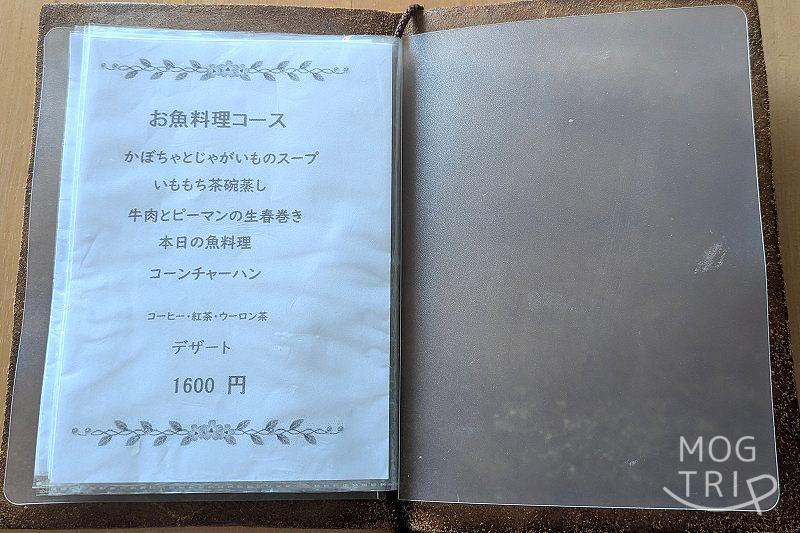 お魚料理コース
かぼちゃとじゃがいものスープ
いももち茶碗蒸し
牛肉とピーマンの生春巻き
本日の魚料理
コーンチャーハン
コーヒー・紅茶・ウーロン茶
デザート
1600 円
MOG
TRIP